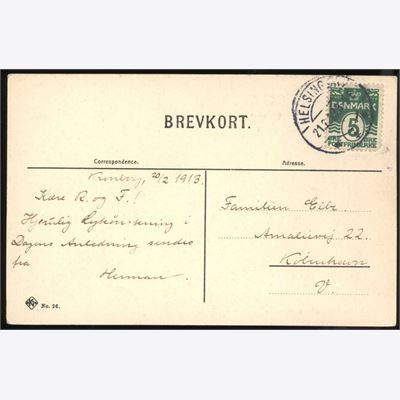 HELSING
21.
DANMARK
5
ØRE ØRE
POSTFRIMÆRKE
BREVKORT.
Correspondence.
Adresse.
Kronborg, 20/2 1913.
Kære R. og F.!
Hjertelig Lykønskning i
Dagens Anledning sendes
fra
Herman.
Familien Gibe
Amalievej 22.
København
V.
No. 24.